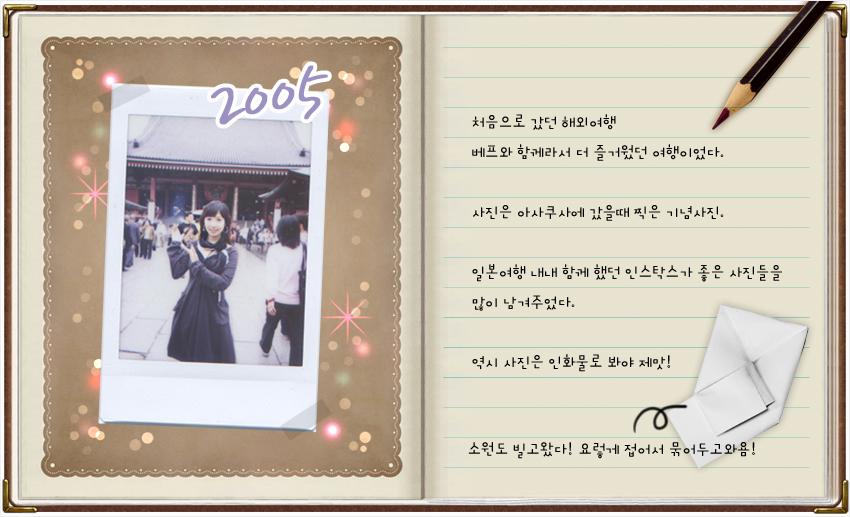 2005
처음으로 갔던 해외여행
베프와 함께라서 더 즐거웠던 여행이었다.
사진은 아사쿠사에 갔을때 찍은 기념사진.
일본여행 내내 함께 했던 인스탁스가 좋은 사진들을
많이 남겨주었다.
역시 사진은 인화물로 봐야 제맛!
소원도 빌고왔다! 요렇게 접어서 묶어두고와욤!